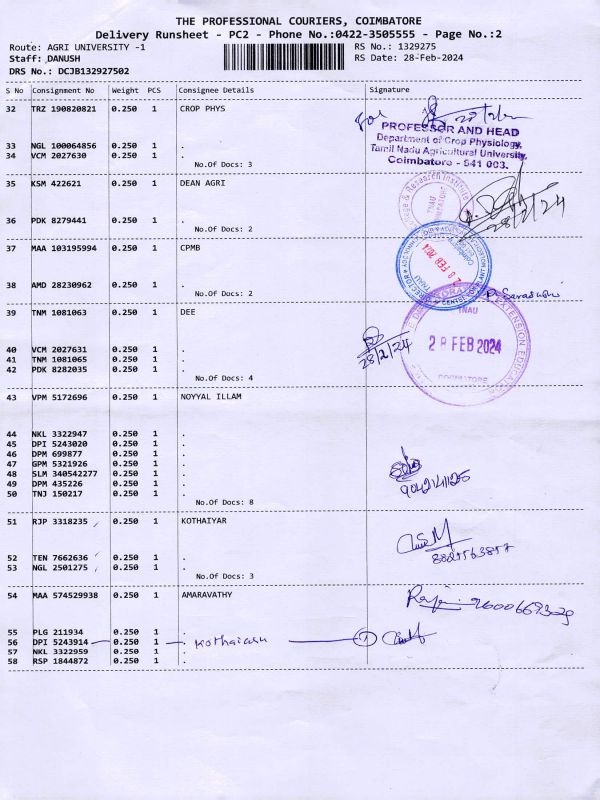 THE PROFESSIONAL COURIERS, COIMBATORE
Delivery Runsheet - PC2 - Phone No.:0422-3505555 - Page No.:2
Route: AGRI UNIVERSITY -1 RS No.: 1329275
Staff: DANUSH RS Date: 28-Feb-2024
DRS No.: DCJB132927502
S No Consignment No Weight PCS Consignee Details Signature
32 TRZ 190820821 0.250 1 CROP PHYS
for
PROFESSOR AND HEAD
Department of Crop Physiology,
Tamil Nadu Agricultural University,
Coimbatore - 641 003.
33 NGL 100064856 0.250 1 .
34 VCM 2027630 0.250 1 .
No.Of Docs: 3
35 KSM 422621 0.250 1 DEAN AGRI
28/2/24
36 PDK 8279441 0.250 1 .
No.Of Docs: 2
37 MAA 103195994 0.250 1 CPMB
28 FEB 2024
38 AMD 28230962 0.250 1 .
No.Of Docs: 2
39 TNM 1081063 0.250 1 DEE
TNAU
28 FEB 2024
COIMBATORE
28/2/24
40 VCM 2027631 0.250 1 .
41 TNM 1081065 0.250 1 .
42 PDK 8282035 0.250 1 .
No.Of Docs: 4
43 VPM 5172696 0.250 1 NOYYAL ILLAM
44 NKL 3322947 0.250 1 .
45 DPI 5243020 0.250 1 .
46 DPM 699877 0.250 1 .
47 GPM 5321926 0.250 1 .
48 SLM 340542277 0.250 1 .
49 DPM 435226 0.250 1 .
50 TNJ 150217 0.250 1 .
No.Of Docs: 8
51 RJP 3318235 0.250 1 KOTHAIYAR
52 TEN 7662636 0.250 1 .
53 NGL 2501275 0.250 1 .
No.Of Docs: 3
54 MAA 574529938 0.250 1 AMARAVATHY
55 PLG 211934 0.250 1 .
56 DPI 5243914 0.250 1 .
57 NKL 3322959 0.250 1 .
58 RSP 1844872 0.250 1 .